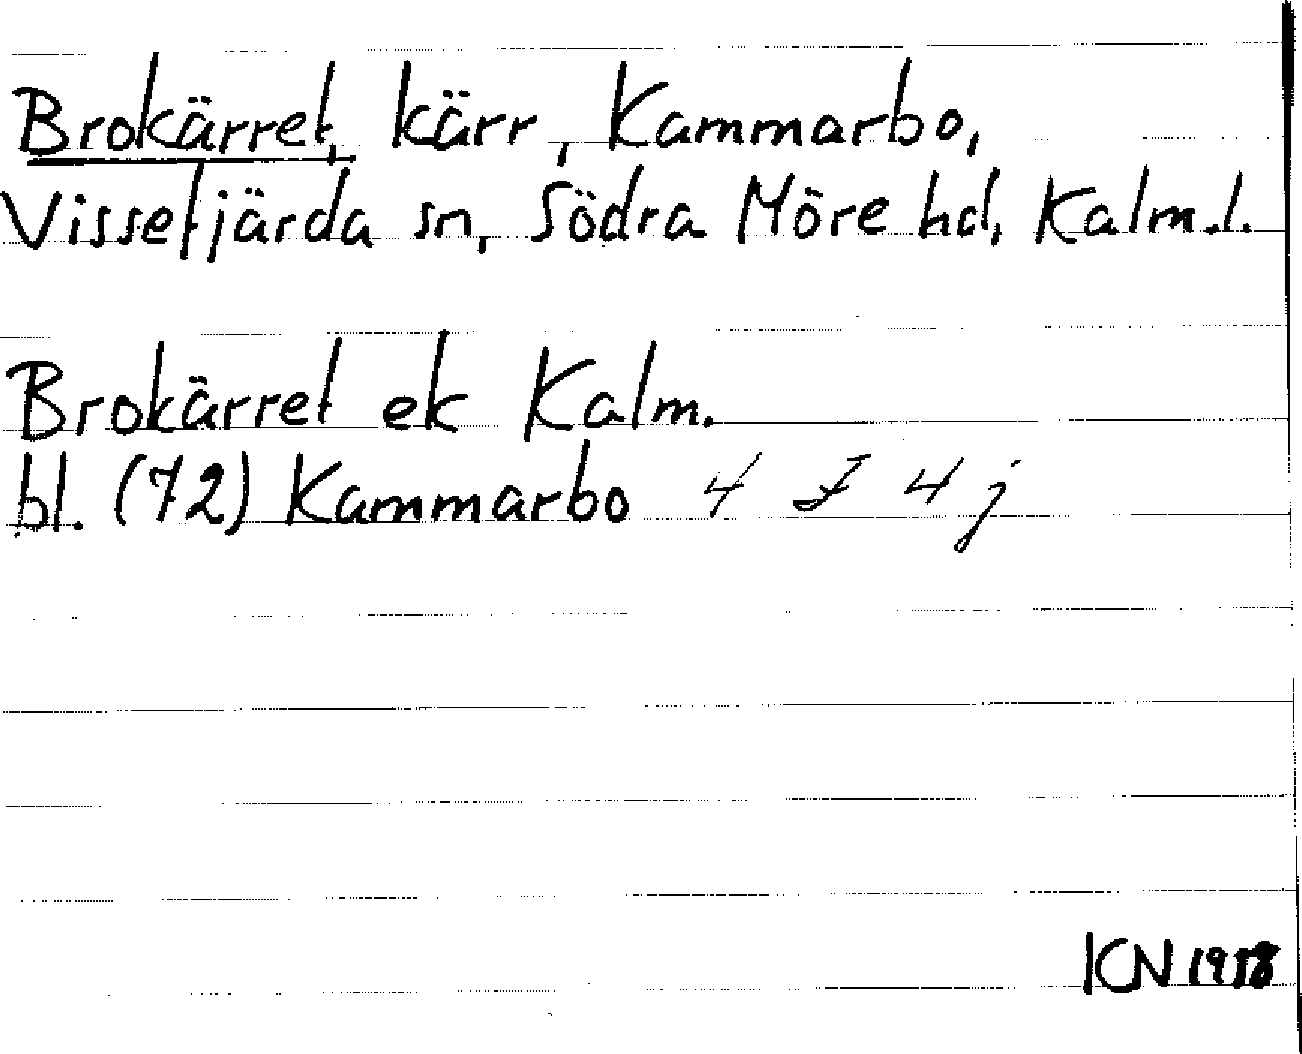 Brokärret, kärr, Kammarbo,
Vissefjärda sn, Södra Möre hd, Kalm.l.
Brokärret ek Kalm.
bl. (72) Kammarbo 4 F 4 j
KN 1958